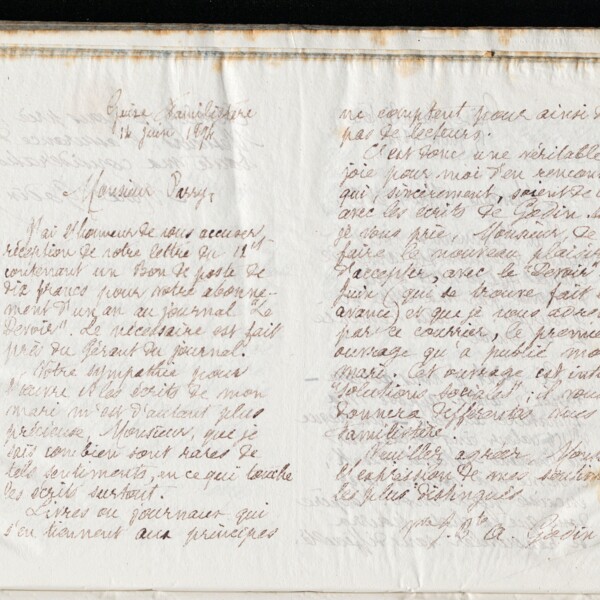 Guise Familistère
14 juin 1894
Monsieur Parry,
J'ai l'honneur de vous accuser
réception de votre lettre du 12 ct
contenant un bon de poste de
dix francs pour votre abonne-
ment d'un an au journal "Le
Devoir". Le nécessaire est fait
près du Gérant du journal.
Votre sympathie pour
l'œuvre et les écrits de mon
mari m'est d'autant plus
précieuse, Monsieur, que je
sais combien sont rares de
tels sentiments, en ce qui touche
les écrits surtout.
Livres ou journaux qui
s'en tiennent aux principes
ne comptent pour ainsi d
pas de lecteurs.
C'est donc une véritable
joie pour moi d'en rencon
qui, sincèrement, soient de
avec les écrits de Godin.
je vous prie, Monsieur, de
faire le nouveau plaisir
d'accepter, avec le "Devoir"
juin (qui se trouve fait
avance) et que je vous adre
par ce courrier, le premie
ouvrage qu'a publié mo
mari. Cet ouvrage est inti
"Solutions sociales"; il vou
donnera différentes vues
familistère.
Veuillez agréer, Mons
l'expression de mes sentim
les plus distingués.
A. Godin